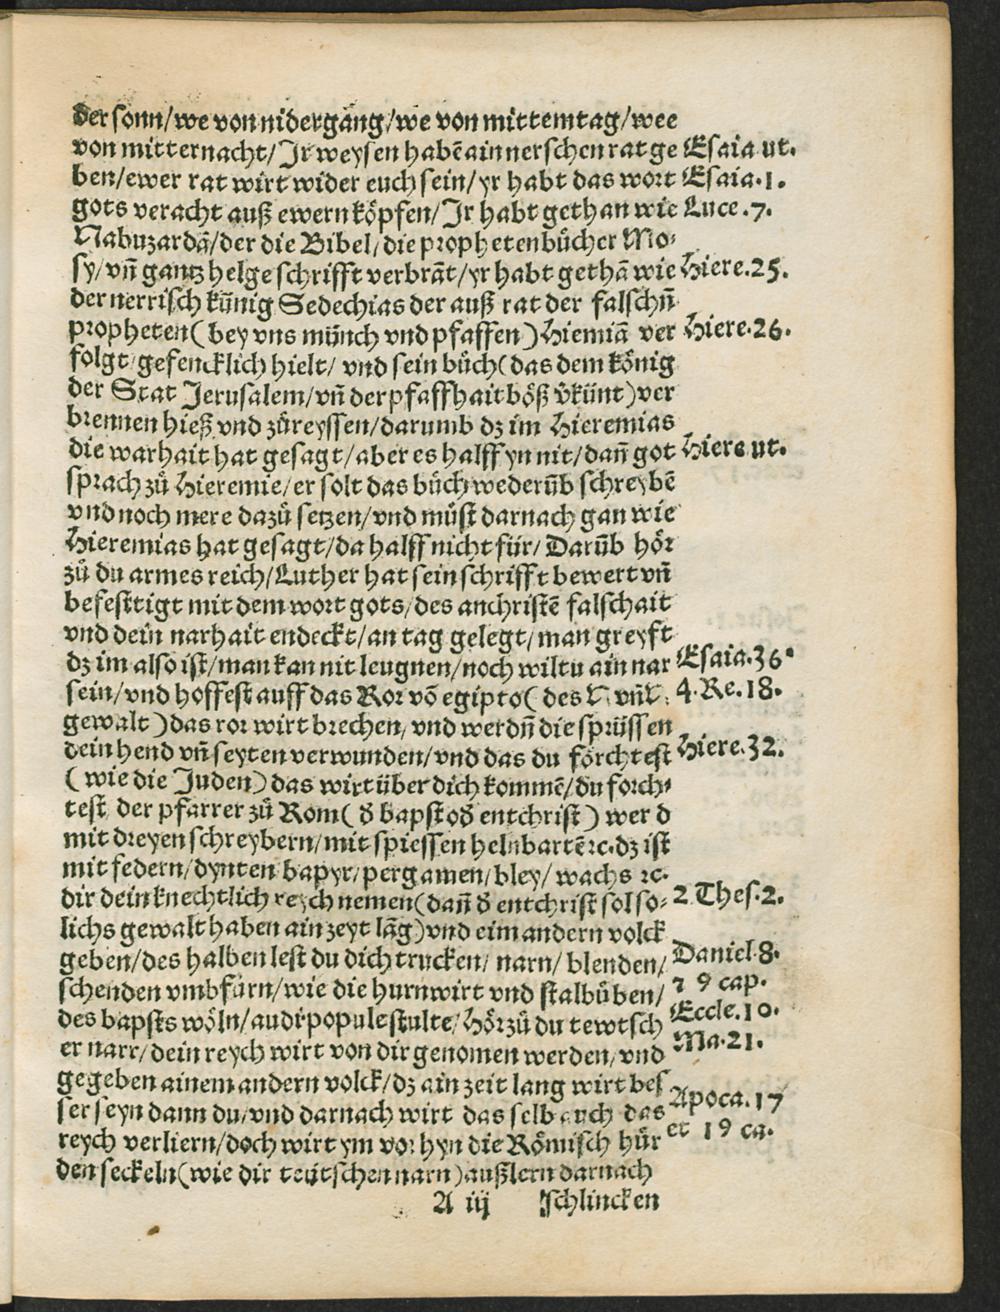 der sonn/we von nidergang/we von mittemtag/wee
von mitternacht/Jr weysen habē ain nerschen rat ge Esaia ut.
ben/ewer rat wirt wider euch sein/yr habt das wort Esaia.1.
gots veracht auß ewern köpfen/Jr habt gethan wie Luce.7.
Nabuzardā/der die Bibel/die propheten bücher Mo⸗
sy/vn̄ gantz helge schrifft verbrāt/yr habt gethā wie Hiere.25.
der nerrisch kūnig Sedechias der auß rat der falschn̄
propheten(bey vns münch vnd pfaffen)Hiemiā ver Hiere.26.
folgt/gefencklich hielt/vnd sein bůch(das dem könig
der Stat Jerusalem/vn̄ der pfaffhait böß v̄künt)ver
brennen hieß vnd zůreyssen/darumb dz im Hieremias
die warhait hat gesagt/aber es halff yn nit/dan̄ got Hiere ut.
sprach zů Hieremie/er solt das bůch wederūb schreybē
vnd noch mere dazů setzen/vnd můst darnach gan wie
Hieremias hat gesagt/da halff nicht für/Darūb hör
zů du armes reich/Luther hat sein schrifft bewert vn̄
befesttigt mit dem wort gots/des anchristē falschait
vnd dein narhait endeckt/an tag gelegt/man greyft
dz im also ist/man kan nit leugnen/noch wiltu ain nar Esaia.36.
sein/vnd hoffest auff das Ror vō egipto(des vn̄ 4.Re.18.
gewalt)das ror wirt brechen/vnd werdn̄ die sprüssen
dein hend vn̄ seyten verwunden/vnd das du förchtest Hiere.32.
(wie die Juden)das wirt über dich kommē/du forch⸗
test der pfarrer zů Rom(d̄ bapst od̄ entchrist)werd
mit dreyen schreybern/mit spiessen helnbartē ꝛc.dz ist
mit federn/dynten bapyr/pergamen/bley/wachs ꝛc.
dir dein knechtlich reych nemen(dan̄ d̄ entchrist sol so⸗ 2 Thes.2.
lichs gewalt haben ain zeyt lāg)vnd eim andern volck
geben/des halben lest du dich trucken/narn/blenden/ Daniel 8.
schenden vmbfürn/wie die hurnwirt vnd stalbůben/ ⁊ 9 cap.
des bapsts wöln/audi popule stulte/Hör zů du tewtsch Eccle.10.
er narr/dein reych wirt von dir genomen werden/vnd Ma.21.
gegeben ainem andern volck/dz ain zeit lang wirt bes
ser seyn dann du/vnd darnach wirt das selb auch das Apoca.17
reych verliern/doch wirt ym vorhyn die Römisch hůr et 19 ca.
den seckeln(wie dir teütschen narn)außlern darnach
A iij schlincken